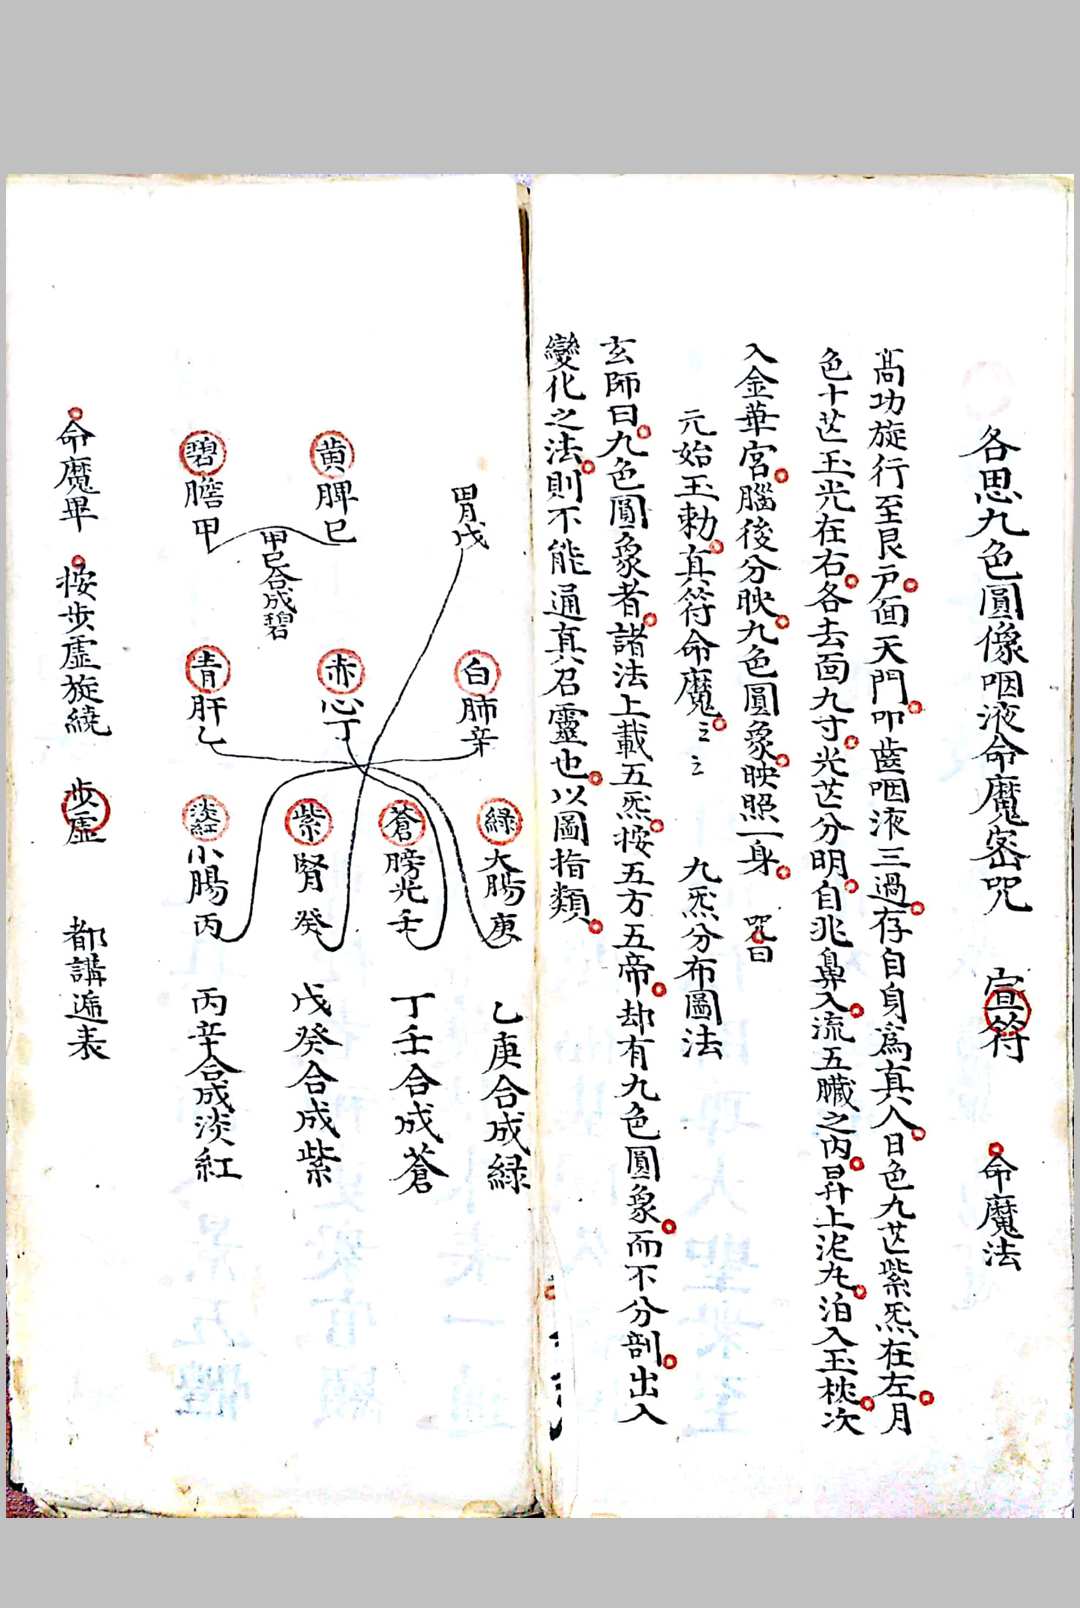 各思九色圓像咽液命魔密咒 宣符 命魔法
高功旋行至艮戸面天門叩齒咽液三過存自身為真人日色九芒紫炁在左月
色十芒玉光在右各去面九寸光芒分明自兆鼻入流五臟之内昇上泥丸泊入玉枕次
入金華宮腦後分映九色圓象映照一身 咒曰
元始玉勅真符命魔 九炁分布圖法
玄師曰九色圓象者諸法上載五炁按五方五帝却有九色圓象而不分剖出入
變化之法則不能通真召靈也以圖指類
胃戊
黄脾巳
碧膽甲
甲巳合成碧
白肺辛
赤心丁
青肝乙
綠大腸庚 乙庚合成綠
蒼膀光壬 丁壬合成蒼
紫腎癸 戊癸合成紫
淡紅小腸丙 丙辛合成淡紅
命魔畢 按步虛旋繞 步虛 都講遞表